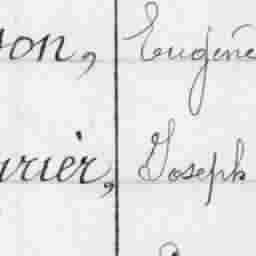 son, Eugène
urier, Joseph